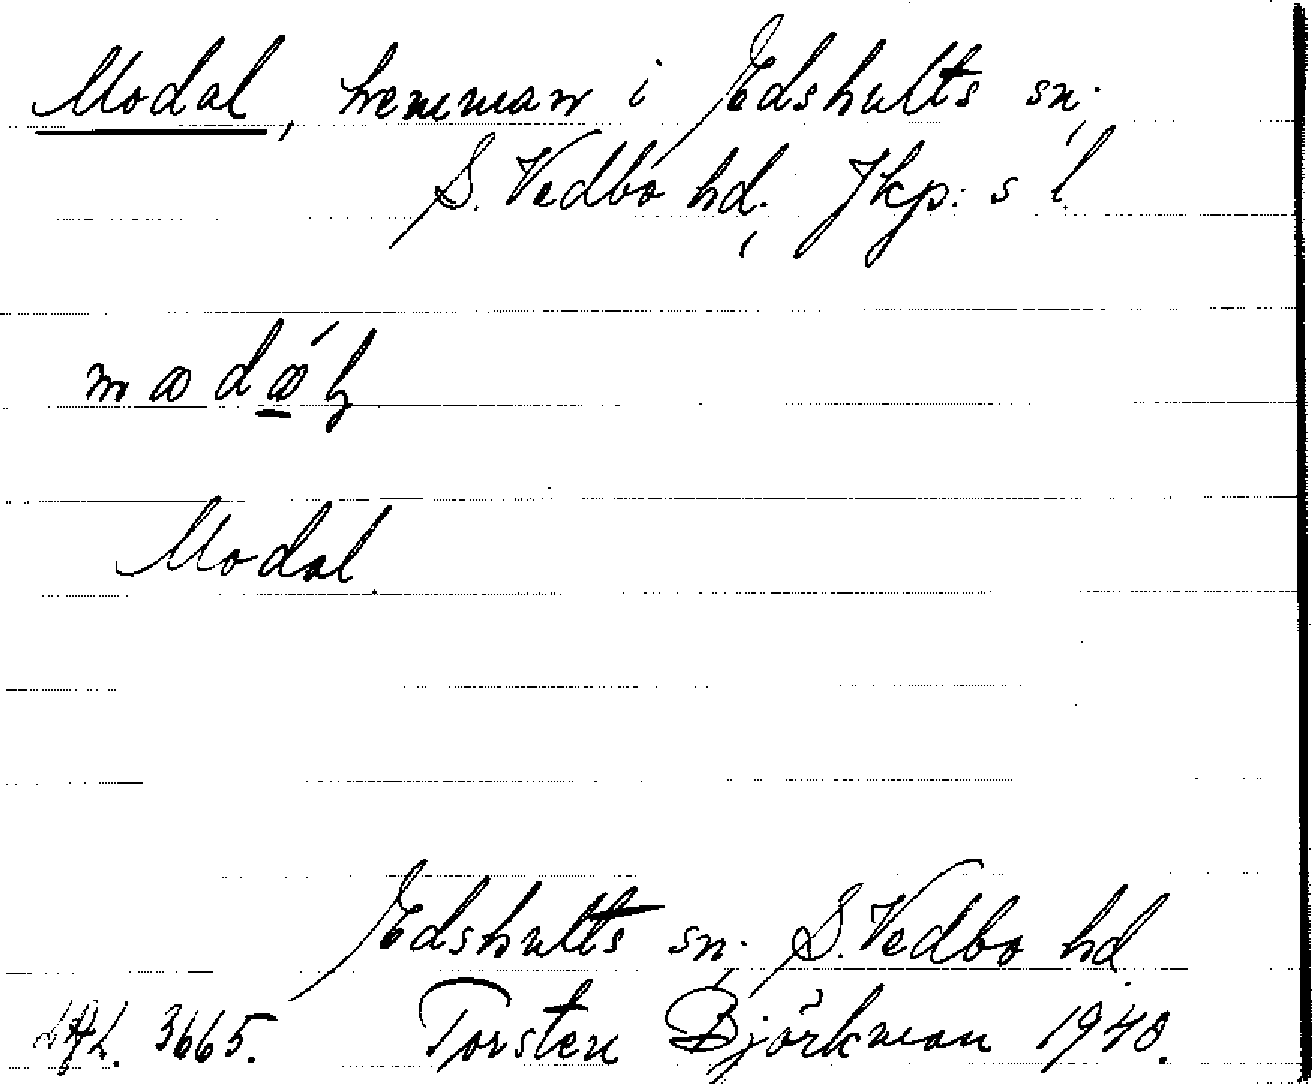 Modal, hemman i Edshults sn;
S. Vedbo hd. Jkp: s l.
Modal.
Edshults sn. S. Vedbo hd.
3665. Torsten Björkman 1940.